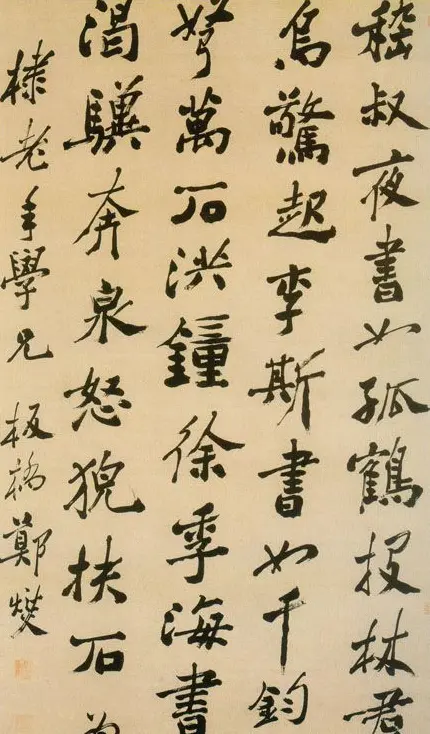 嵇叔夜書如孤鶴投林
鳥驚起李斯書如千鈞
弩萬石洪鐘徐季海書
渴驥奔泉怒猊抉石
棣老年學兄 板橋鄭燮